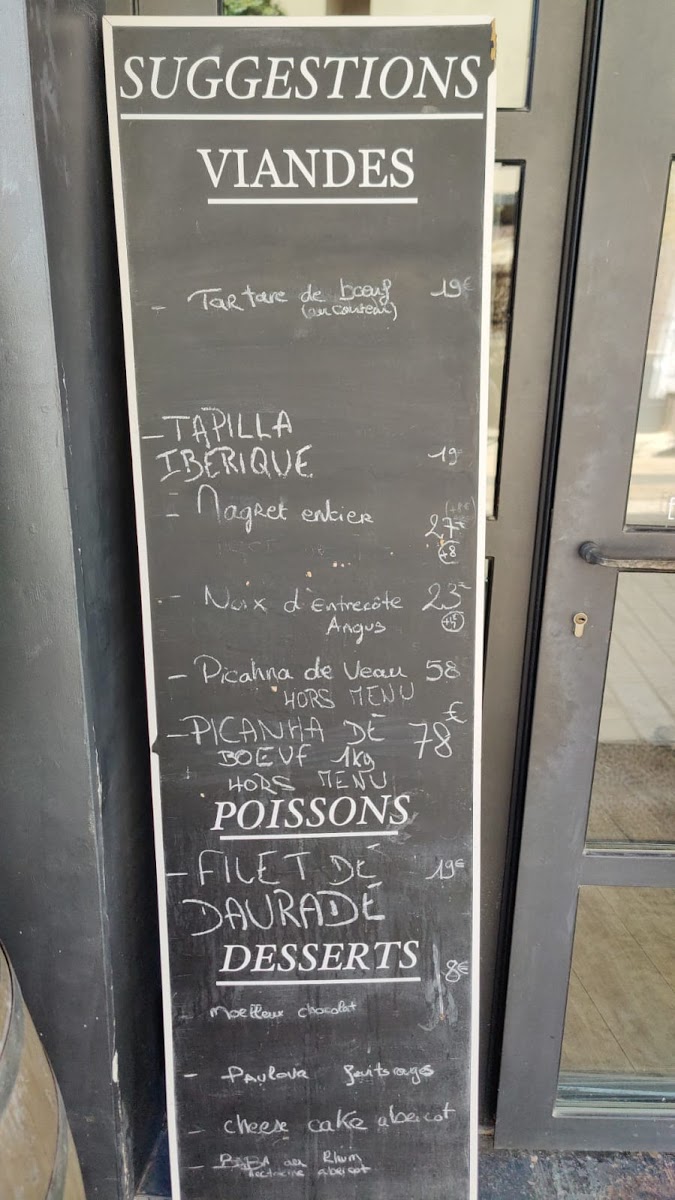 SUGGESTIONS
VIANDES
- Tartare de bœuf 19€
(au couteau)
- TAPILLA
IBERIQUE 19
- Magret entier 27€
+8
- Noix d'Entrecôte 23€
Angus +4
- Picahna de Veau 58
HORS MENU
- PICANHA DÉ 78€
BOEUF 1kg
HORS MENU
POISSONS
- FILET DÉ 19€
DAURADÉ
DESSERTS
8€
- moelleux chocolat
- PAVLOVA fruits rouges
- cheese cake abricot
- BABA au Rhum
nectarine abricot